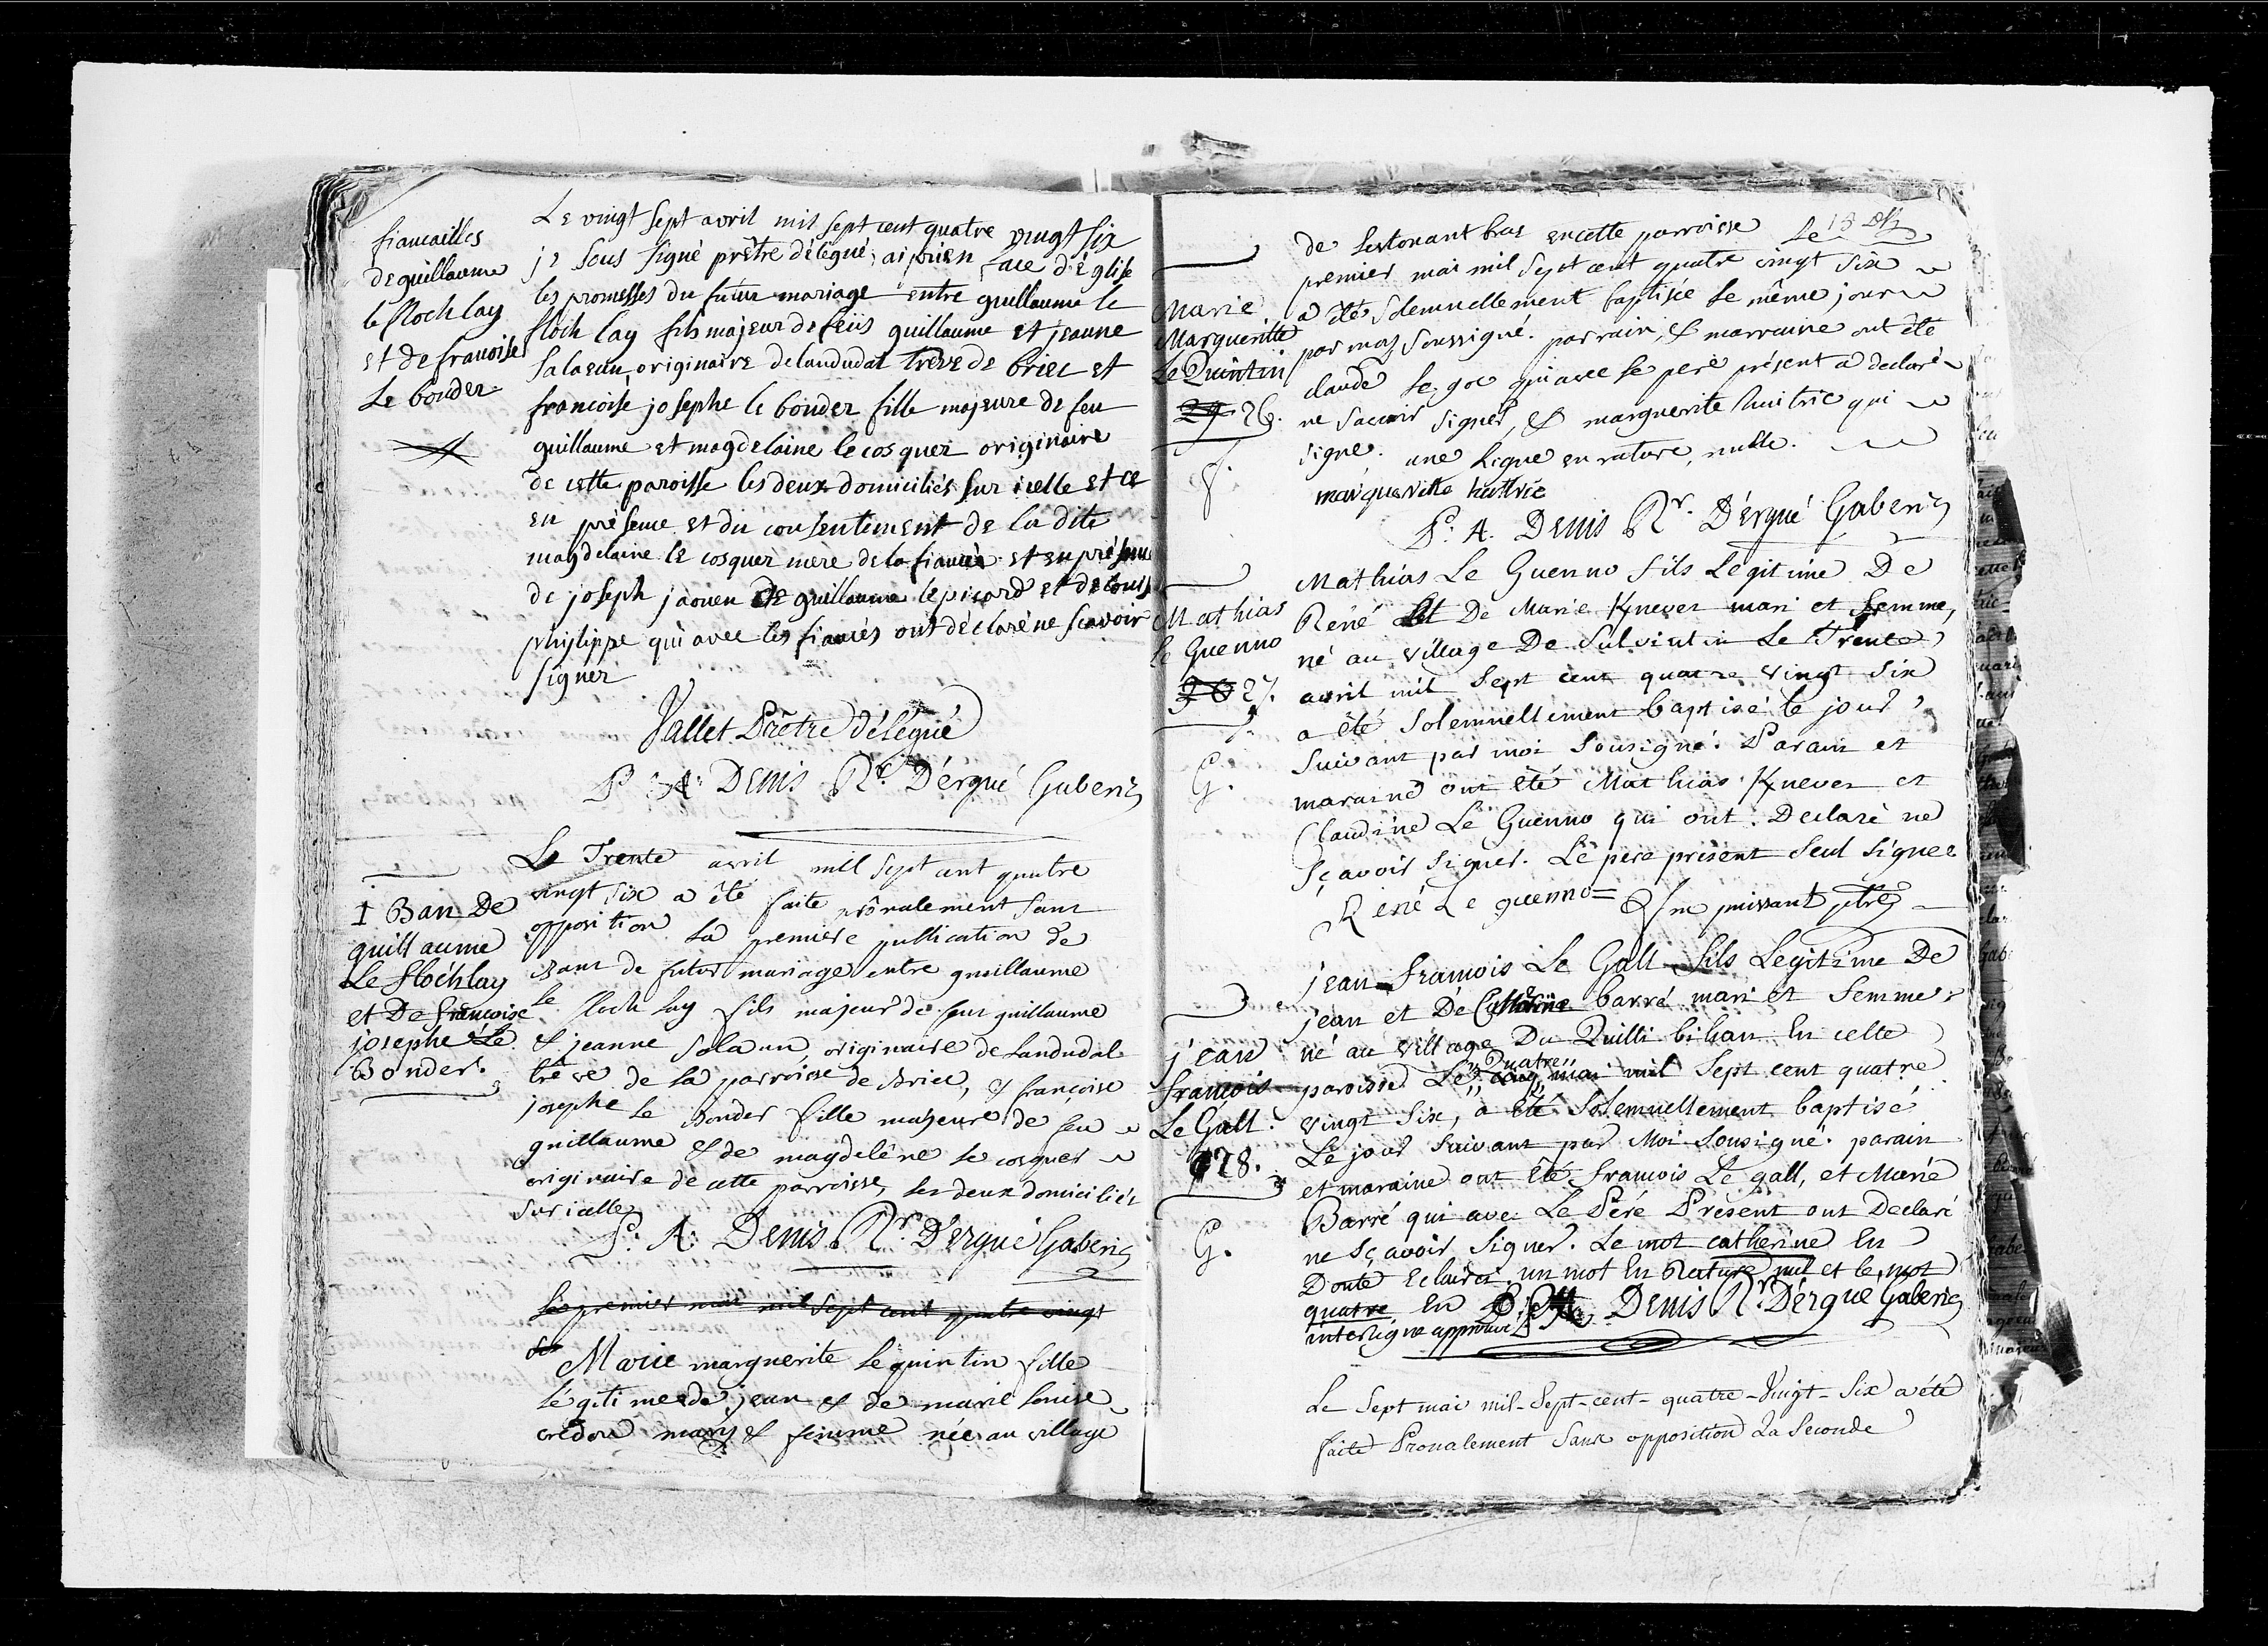 fiancailles
de guillaume
le floch lay
et de francoise
Le bonder
Le vingt sept avril mil sept cent quatre vingt six
je sous signé prêtre délégué, ai pris en face d'église
les promesses du futur mariage entre guillaume le
floch lay fils majeur de feüs guillaume et jeanne
salaeun originaire de landudal trève de briec et
francoise josephe le bonder fille majeure de feu
guillaume et magdelaine le cosquer originaire
de cette paroisse les deux domiciliés sur icelle et ce
en présence et du consentement de la dite
magdelaine le cosquer mère de la fiancée et en présence
de joseph jaouen de guillaume le picard et de louis
philippe qui avec les fiancés ont déclaré ne scavoir
signer
Vallet Prêtre délégué
P. A. Denis Rr. D'ergué Gaberic
1 Ban De
guillaume
Le flochlay
et De françoise
josephe Le
Bonder.
Le Trente avril mil sept cent quatre
vingt six a été faite prônalement sans
opposition la premiere publication de
bans de futur mariage entre guillaume
le floch lay fils majeur de feus guillaume
et jeanne Salaun, originaire de Landudal
trêve de la parroisse de Briec, et françoise
josephe le Bonder fille majeure de feu
guillaume et de magdeléne le cosquer
originaire de cette parroisse, les deux domiciliés
sur icelle
P. A. Denis Rr. D'ergué Gaberic
Le premier mai mil sept cent quatre vingt
six
Marie marguerite Le quintin fille
légitime de jean et de marie louise
credou mary et femme née au village
de Lestonant bras en cette parroisse Le
premier mai mil sept cent quatre vingt six
a été solemnellement baptisée le même jour
par moy soussigné. parrain, et marraine ont été
claude le goc qui avec le pere présent a declaré
ne sçavoir signer, et marguerite huitric qui
signe. une ligne en rature, nulle.
marguerite huitric
P. A. Denis Rr. D'ergué Gaberic
Marie
Marguerite
Le Quintin
26.
f.
Mathias Le Guenno fils Légitime De
René Et De Marie Knever mari et femme,
né au village De Sulvintin Le Trente
avril mil sept cent quatre vingt six
a été solemnellement baptisé le jour
suivant par moi sousigné. Parain et
maraine ont été Mathias Knever et
Claudine Le Guenno qui ont Declaré ne
sçavoir signer. Le pere présent seul signer
René Le guenno
puissant ptre
Mathias
le Guenno
27.
G.
jean François Le Gall fils Legitime De
jean et De Catherine barré mari et femme
né au village Du Quilli bihan En cette
paroisse Le quatre mai mil sept cent quatre
vingt six, a été solemnellement baptisé
Le jour suivant par Moi sousigné. parain
et maraine ont été François Le gall, et Marie
Barré qui avec Le Péré Présent ont Declaré
ne sçavoir signer. Le mot catherine En
Doute Eclairci, un mot En Rature nul et le mot
quatre En
interligne approuvé P. A. Denis Rr. D'ergué Gaberic
jean
francois
Le Gall.
28.
G.
Le Sept mai mil-sept-cent-quatre-Vingt-Six a été
faite Pronalement Sans opposition La Seconde